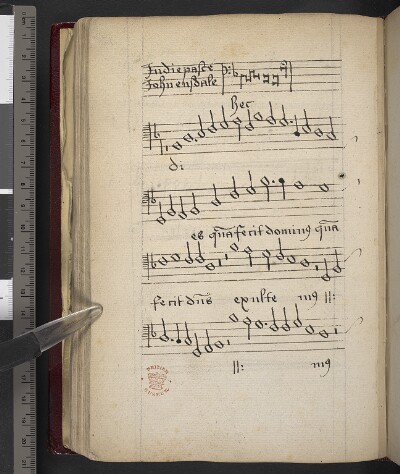 In die pasce
Johnensdale
Hec
di
es quā fecit dominꝰ quā
fecit dn̄s exulte mꝰ ||:
||: mꝰ
BRITISH MUSEUM